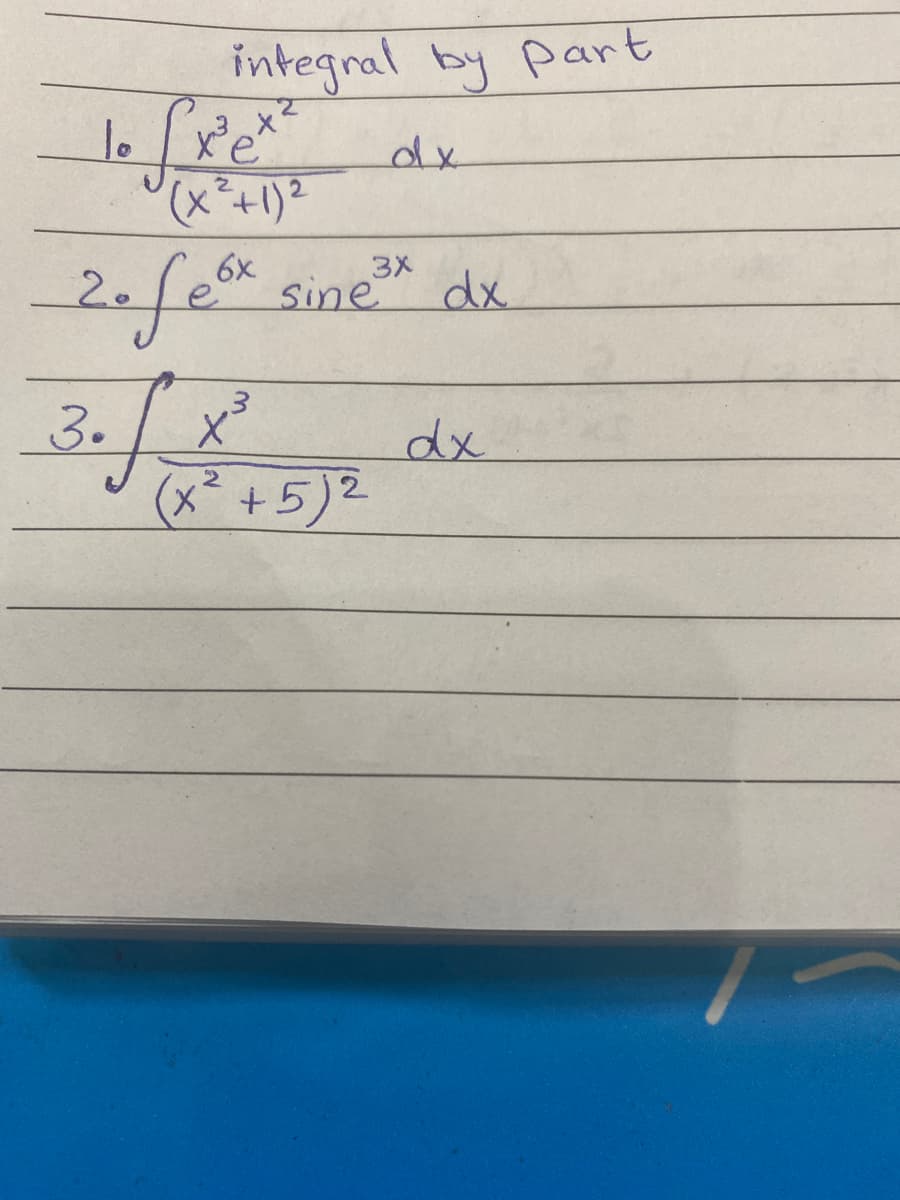 integral by part
1. ∫ x³e^x² / (x²+1)² dx
2. ∫ e^6x sine^3x dx
3. ∫ x³ / (x² + 5)² dx